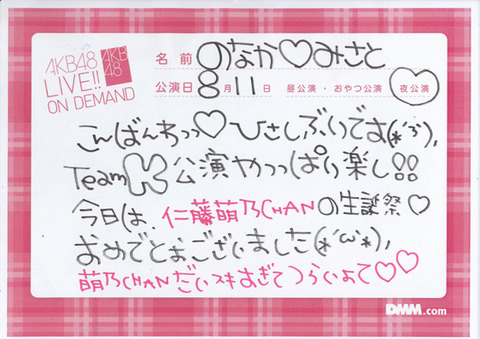 AKB48
LIVE!!
ON DEMAND
AKB
48
名前 のなか♡みさと
公演日 8月11日 昼公演・おやつ公演 夜公演
こんばんわっっ♡ひさしぶりです(*´3`),
TeamK公演やっっぱり楽し!!
今日は、仁藤萌乃CHANの生誕祭♡
おめでとおございました(*´ω`*),
萌乃CHANだいスキすぎてつらいよて♡♡
DMM.com